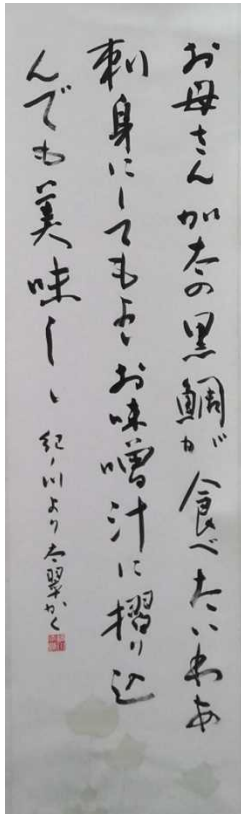 お母さん加太の黒鯛が食べたいわあ
刺身にしてもよしお味噌汁に摺り込
んでも美味しい
紀ノ川より 太翠かく